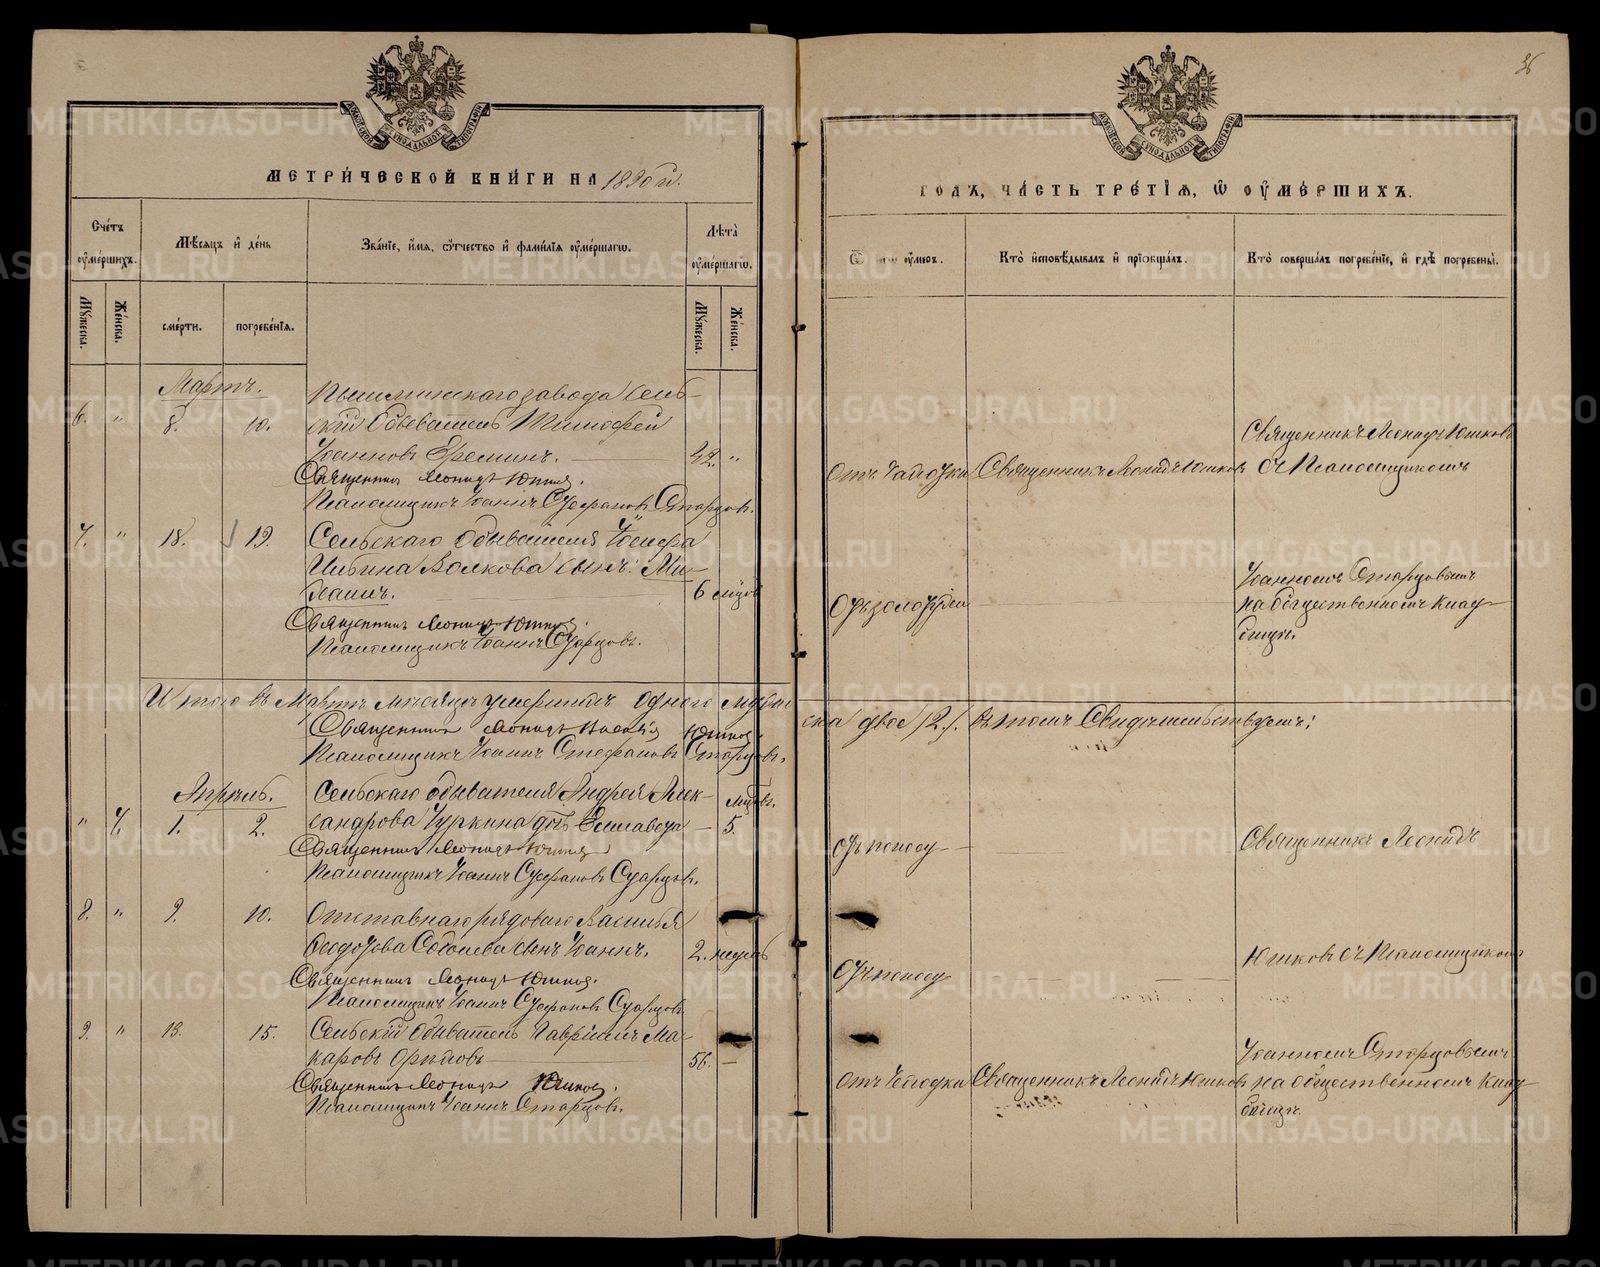 МЕТРИ́ЧЕСКОЙ КНИ́ГИ НА 1890 й.
Сче́тъ ᲂу҆ме́ршихъ.
Мѣ́сяцъ и҆ де́нь
Зва́нїе, и҆́мя, ѻ҆́тчество и҆ фами́лїя ᲂу҆ме́ршагѡ.
Лѣ́та ᲂу҆ме́ршагѡ.
Му́жеска.
Же́нска.
сме́рти.
погребе́нїя.
Му́жеска.
Же́нска.
Мартъ.
6. " 8. 10.
Пышминскаго завода Сель-
скій Обыватель Тимофей
Іоанновъ Ереминъ. 42. "
Священникъ Леонидъ Юшковъ.
Псаломщикъ Іоаннъ Стефановъ Старцовъ.
7. " 18. 19.
Сельскаго Обывателя Іосифа
Волкова сынъ: Ми-
хаилъ. 6 мѣсяц
Священникъ Леонидъ Юшковъ.
Псаломщикъ Іоаннъ Старцовъ.
Итого въ Мартѣ мѣсяцѣ умершихъ одного мужес
Священникъ Леонидъ Юшковъ.
Псаломщикъ Іоаннъ Стефановъ Старцовъ.
Апрѣль.
" 7. 1. 2.
Сельскаго обывателя Андрея Алек-
сандрова Чуркина дочь Елисавета — 5.
Священникъ Леонидъ Юшковъ
Псаломщикъ Іоаннъ Стефановъ Старцовъ.
8. " 9. 10.
Отставнаго рядоваго Василья
Федотова Соболева сынъ Іоаннъ. 2. недѣль
Священникъ Леонидъ Юшковъ.
Псаломщикъ Іоаннъ Стефановъ Старцовъ.
9. " 13. 15.
Сельскій Обыватель Гавріилъ Ма-
каровъ 56. —
Священникъ Леонидъ Юшковъ.
Псаломщикъ Іоаннъ Старцовъ.
36
ГОДЪ, ЧА́СТЬ ТРЕ́ТЇѦ, Ѽ ᲂУ҆МЕ́РШИХЪ.
ᲂу҆́меръ.
Кто̀ и҆сповѣ́дывалъ и҆ прїѡбща́лъ.
Кто̀ соверша́лъ погребе́нїе, и҆ гдѣ̀ погребены̀.
Отъ чахотки
Священникъ Леонидъ Юшковъ
Священникъ Леонидъ Юшковъ
съ Псаломщикомъ
Отъ золотухи
Іоанномъ Старцовымъ
на общественномъ клад-
бищѣ.
ска двое /2./. въ томъ Свидѣтельствуемъ:
Отъ поносу
Священникъ Леонидъ
Отъ поносу
Юшковъ съ Псаломщикомъ
Отъ чахотки
Священникъ Леонидъ Юшковъ
Іоанномъ Старцовымъ
на общественномъ клад-
бищѣ.
METRIKI.GASO-URAL.RU